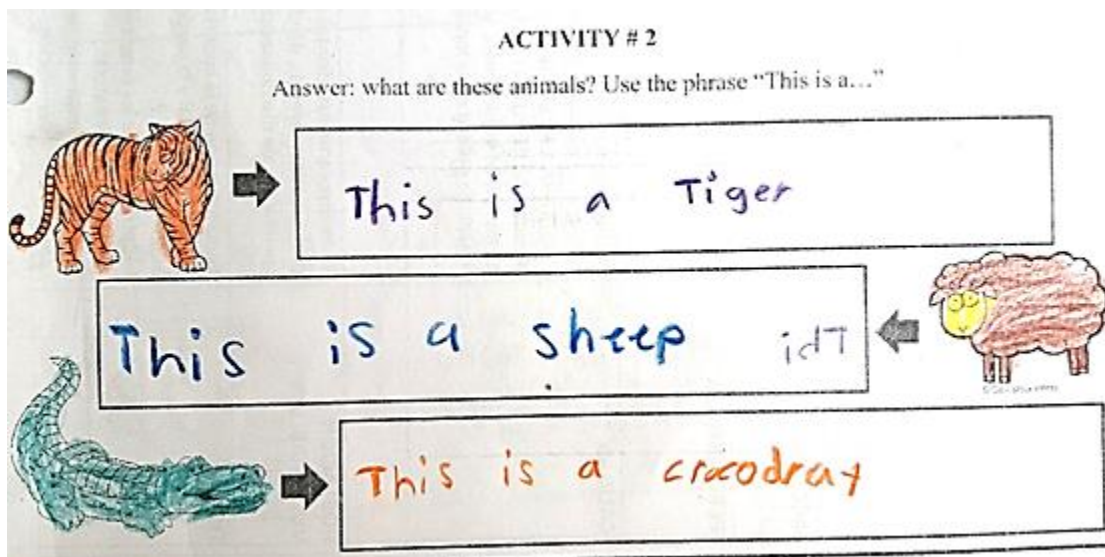 ACTIVITY # 2
Answer: what are these animals? Use the phrase “This is a…”
This is a Tiger
This is a sheep idT
This is a crocodray